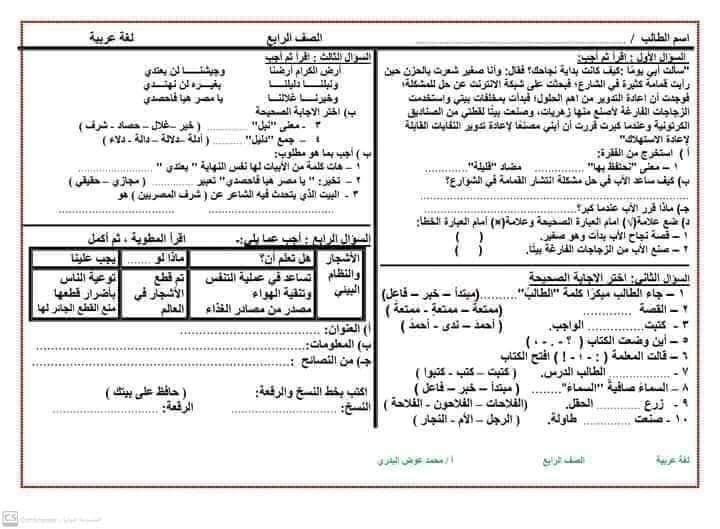 اسم الطالب / ........................ الصف الرابع لغة عربية
السؤال الأول : اقرأ ثم أجب:
"سألت أبي يومًا :كيف كانت بداية نجاحك؟ فقال: وأنا صغير شعرت بالحزن حين
رأيت قمامة كثيرة في الشارع؛ فبحثت على شبكة الانترنت عن حل للمشكلة؛
فوجدت أن إعادة التدوير من أهم الحلول؛ فبدأت بمخلفات بيتي واستخدمت
الزجاجات الفارغة لأصنع منها زهريات، وصنعت بيتًا لقطتي من الصناديق
الكرتونية وعندما كبرت قررت أن أبني مصنعًا لإعادة تدوير النفايات القابلة
لإعادة الاستهلاك"
أ ) استخرج من الفقرة:
١ – معنى "نحتفظ بها" ............ مضاد "قليلة" ............
ب) كيف ساعد الأب في حل مشكلة انتشار القمامة في الشوارع؟
........................
جـ) ماذا قرر الأب عندما كبر؟ ........................
د) ضع علامة(√) امام العبارة الصحيحة وعلامة(×) أمام العبارة الخطأ:
١ – قصة نجاح الأب بدأت وهو صغير. ( )
٢ – صنع الأب من الزجاجات الفارغة بيتًا. ( )
السؤال الثاني: اختر الاجابة الصحيحة
١ – جاء الطالب مبكرًا كلمة "الطالبُ"..........(مبتدأ – خبر – فاعل)
٢ – القصة ............ (ممتعةً – ممتعةٍ - ممتعةٌ )
٣ - كتبت............ الواجب. ( أحمدَ – ندى - أحمدُ )
٥ – أين وضعت الكتاب ( ؟ - . - ، )
٦ – قالت المعلمة ( : - ؛ - ! ) افتح الكتاب
٧ - ............ الطالب الدرس. ( كتبت – كتب - كتبوا )
٨ – السماءُ صافيةٌ "السماءُ"........ ( مبتدأ – خبر – فاعل )
٩ - زرع ............ الحقل. (الفلاحات – الفلاحون - الفلاحة )
١٠ - صنعت ............ طاولة. ( الرجل – الأم - النجار )
السؤال الثالث : اقرأ ثم أجب
أرض الكرام أرضنا وجيشنـــــا لن يعتدي
ونيلنـــــا دليلنـــــا بغيـــره لن نهتــدي
وخيرنـــــا غلالنـــا يا مصر هيا فاحصدي
ب) اختر الاجابة الصحيحة
٣ - معنى "نيل" ............ ( خير –غلال – حصاد - شرف )
٤ - جمع "دليل" ............ ( أدلة –دلالة – دالة - دلاء )
ب ) أجب بما هو مطلوب:
١ – هات كلمة من الأبيات لها نفس النهاية " يعتدي " ............
٢ – تخير: " يا مصر هيا فاحصدي" تعبير ............ ( مجازي – حقيقي )
٣ – البيت الذي يتحدث فيه الشاعر عن ( شرف المصريين ) هو
........................ ........................
السؤال الرابع : أجب عما يلي:- اقرأ المطوية ، ثم أكمل
الأشجار والنظام البيئي
هل تعلم أن؟ ماذا لو ........ يجب علينا
تساعد في عملية التنفس تم قطع توعية الناس
وتنقية الهواء الأشجار في بأضرار قطعها
مصدر من مصادر الغذاء العالم منع القطع الجائر لها
أ) العنوان: ........................
ب) المعلومات: ........................
جـ) من النصائح : ........................
اكتب بخط النسخ والرقعة: ( حافظ على بيتك )
النسخ: ........................ الرقعة: ........................
لغة عربية الصف الرابع أ / محمد عوض البدري
CS